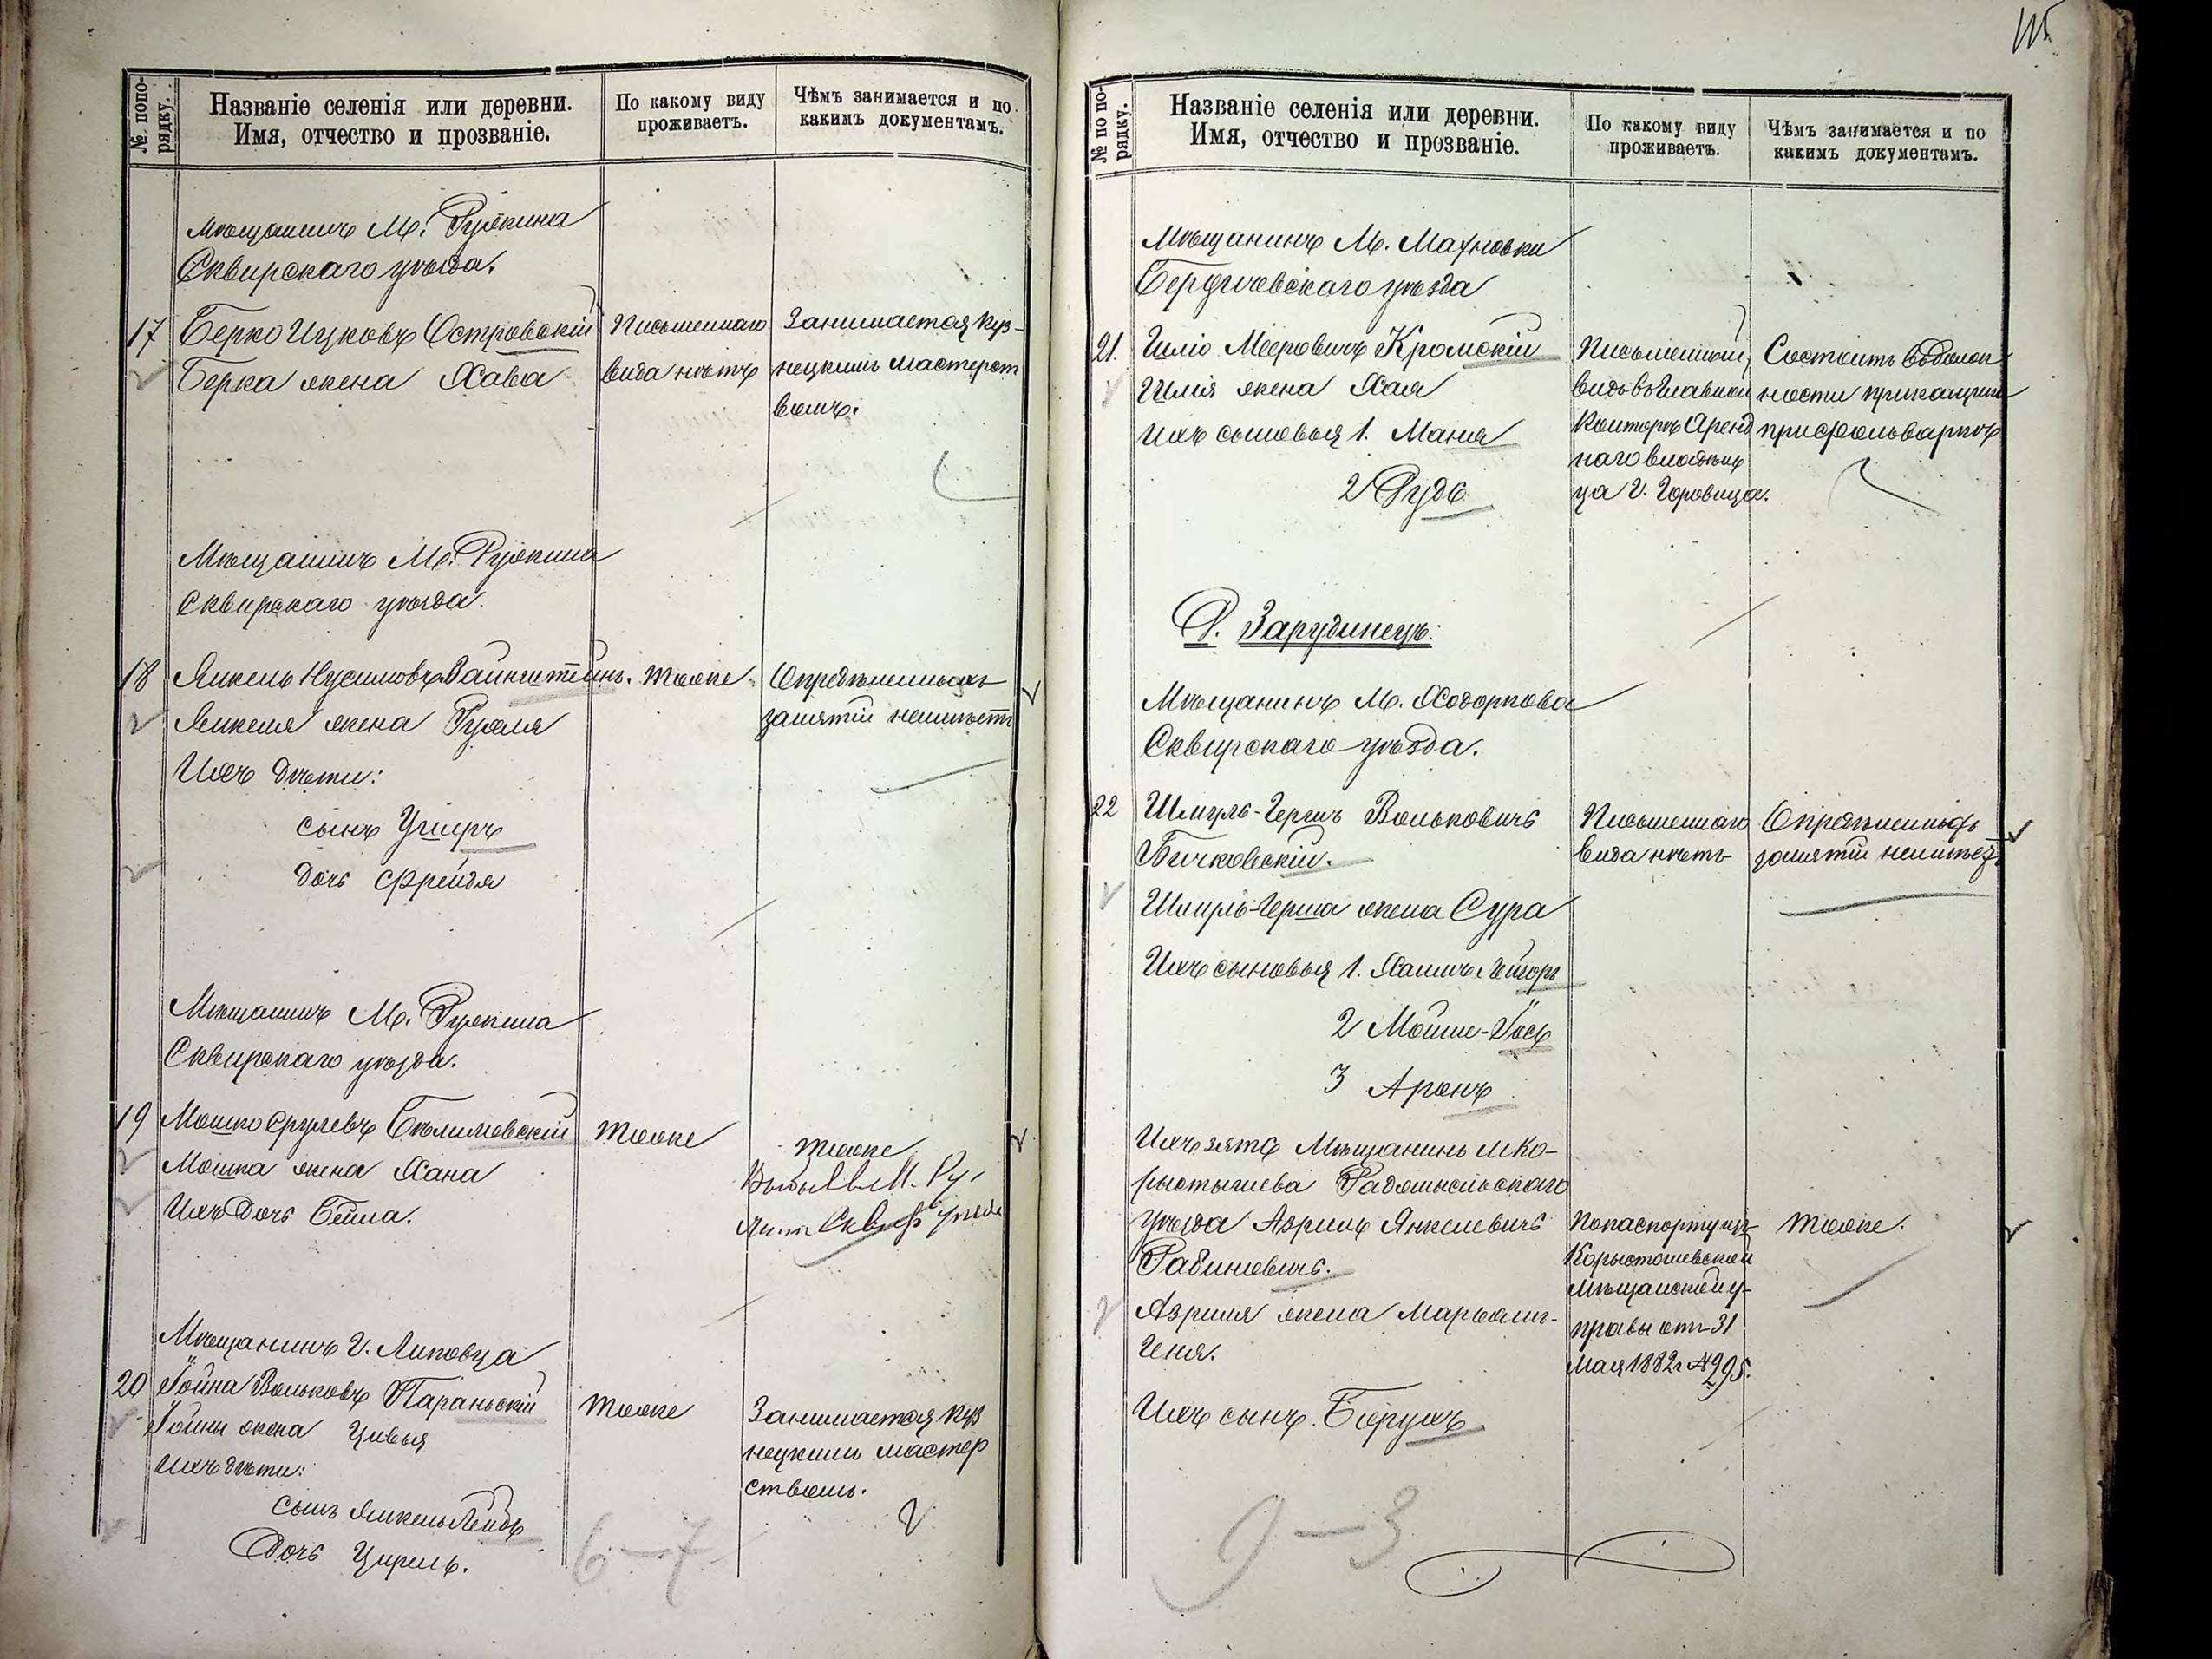 № по по-
рядку.
Названіе селенія или деревни.
Имя, отчество и прозваніе.
По какому виду
проживаетъ.
Чѣмъ занимается и по
какимъ документамъ.
Мѣщанинъ М. Ружина
Сквирскаго уѣзда.
17 Берко Ицковъ Островскій
Берка жена Хава
Письменнаго
вида нѣтъ
Занимается куз-
нецкимъ мастерст
вомъ.
Мѣщанинъ М. Ружина
Сквирскаго уѣзда.
18 Янкель Нусимовъ Вайнштейнъ.
Янкеля жена Рухля
Ихъ дѣти:
сынъ Ушеръ
дочь Фрейдя
тоже
Опредѣленныхъ
занятій неимѣетъ
Мѣщанинъ М. Ружина
Сквирскаго уѣзда.
19 Мошко Срулевъ Бѣлиловскій
Мошка жена Хана
Ихъ дочь Бейла.
тоже
тоже
М. Ру-
Сквир уѣзда
Мѣщанинъ Г. Липовца
20 Іойна Вольковъ Параньскій
Іойны жена Цивья
ихъ дѣти:
сынъ Янкель Лейбъ
Дочь Цирель.
тоже
Занимается куз
нецкимъ мастер
ствомъ.
6-7
115
№ по по-
рядку.
Названіе селенія или деревни.
Имя, отчество и прозваніе.
По какому виду
проживаетъ.
Чѣмъ занимается и по
какимъ документамъ.
Мѣщанинъ М. Махновки
Бердичевскаго уѣзда
21. Шліо Мееровичъ Кромскій
Шлія жена Хая
Ихъ сыновья 1. Маня
2 Рудь
Письменный
видъ въ Главной
Конторѣ Аренд
наго владѣль
ца Г. Горовица.
Состоитъ въ долж
ности прикащика
при фольваркѣ
Д. Зарудинецъ.
Мѣщанинъ М. Ходоркова
Сквирскаго уѣзда.
22 Шмуль-Гершъ Вольковичъ
Бичковскій.
Шмуль-Герша жена Сура
Ихъ сыновья 1. Хаимъ Лейзоръ
2 Мойше-Іосъ
3 Аронъ
Письменнаго
вида нѣтъ
Опредѣленныхъ
занятій неимѣетъ
Ихъ зять Мѣщанинъ м Ко-
рыстышева Радомысльскаго
уѣзда Азриль Янкелевичъ
Рабиновичъ.
Азриля жена Марьяша-
Геня.
Ихъ сынъ. Борухъ
По паспорту изъ
Корыстышевской
Мѣщанской у-
правы отъ 31
Мая 1882 г №295.
тоже.
9-3